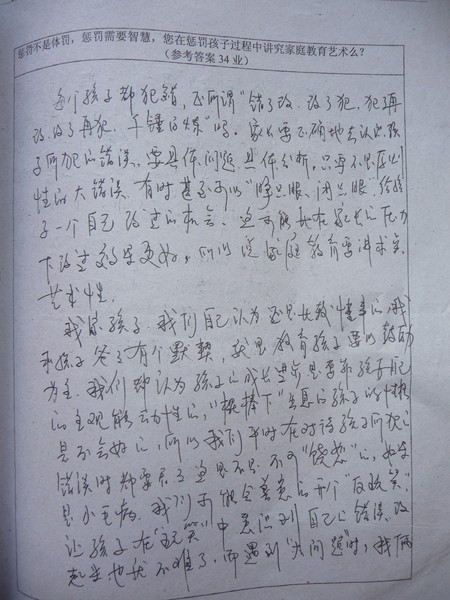 惩罚不是体罚,惩罚需要智慧,您在惩罚孩子过程中讲究家庭教育艺术么?
(参考答案34业)
每个孩子都犯错,正所谓“错了改,改了犯,犯再
改,改了再犯,千锤百炼”吗。家长要正确地去认识孩
子所犯的错误,要具体问题具体分析,只要不是原则
性的大错误,有时甚至可以“睁只眼、闭只眼”给孩
子一个自己改过的机会,这可能比在家长的压力
下改过效果更好,所以说家庭教育要讲求实
艺术性。
我家孩子,我们自己认为还是比较懂事的,我
和孩子爸有个默契,就是教育孩子要以鼓励
为主,我们都认为孩子的成长进步是要靠孩子自己
的主观能动性的,“棍棒下”出息的孩子的性格
是不会好的,所以我们平时在对待孩子所犯的
错误时都要看看这是不是不可“饶恕”的,如果
是小毛病,我们可能会善意的开个“玩笑”,
让孩子在“玩笑”中意识到自己的错误,改
起来也就不难了,而遇到“大问题”时,我俩